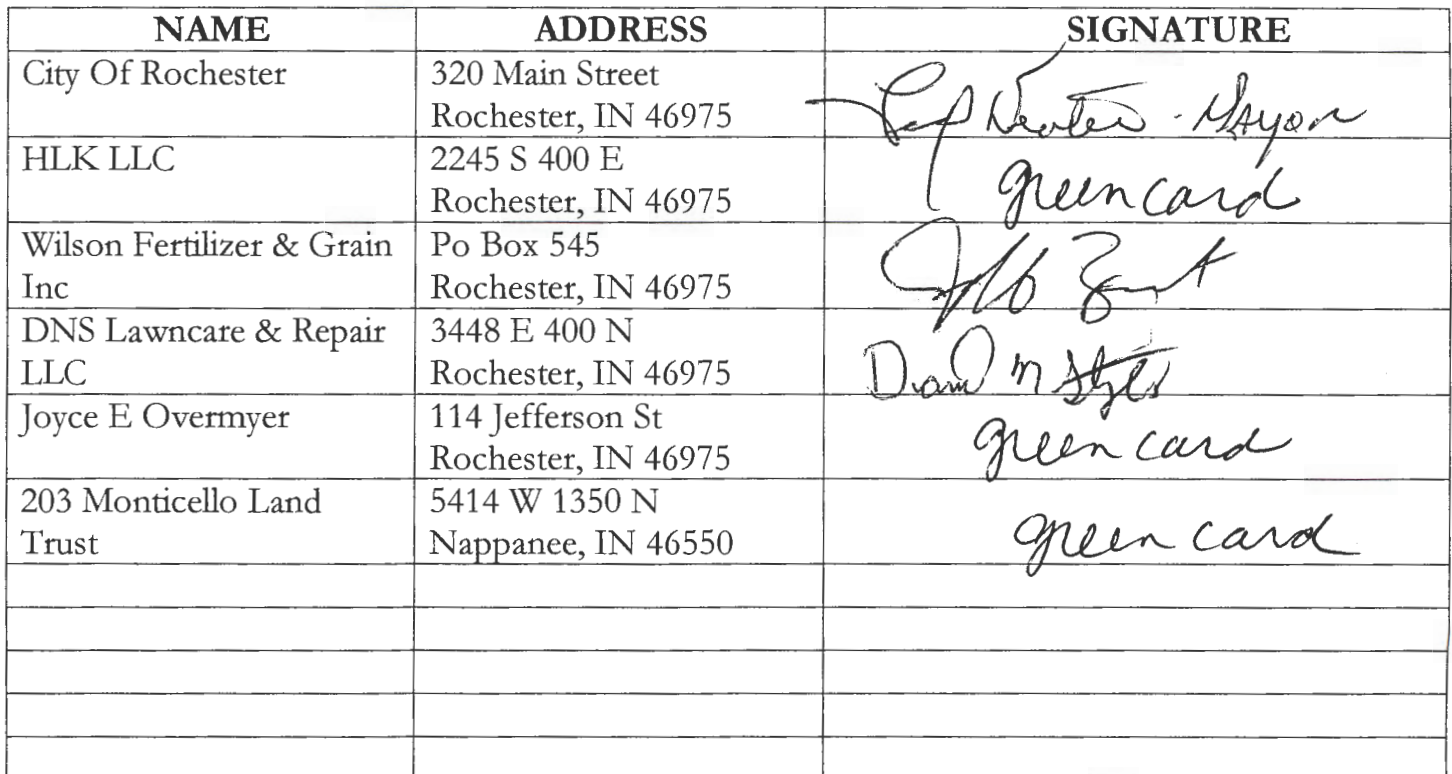 NAME ADDRESS SIGNATURE
City Of Rochester 320 Main Street
Rochester, IN 46975 - Mayor
HLK LLC 2245 S 400 E
Rochester, IN 46975 green card
Wilson Fertilizer & Grain Po Box 545
Inc Rochester, IN 46975
DNS Lawncare & Repair 3448 E 400 N
LLC Rochester, IN 46975 M
Joyce E Overmyer 114 Jefferson St
Rochester, IN 46975 green card
203 Monticello Land 5414 W 1350 N
Trust Nappanee, IN 46550 green card